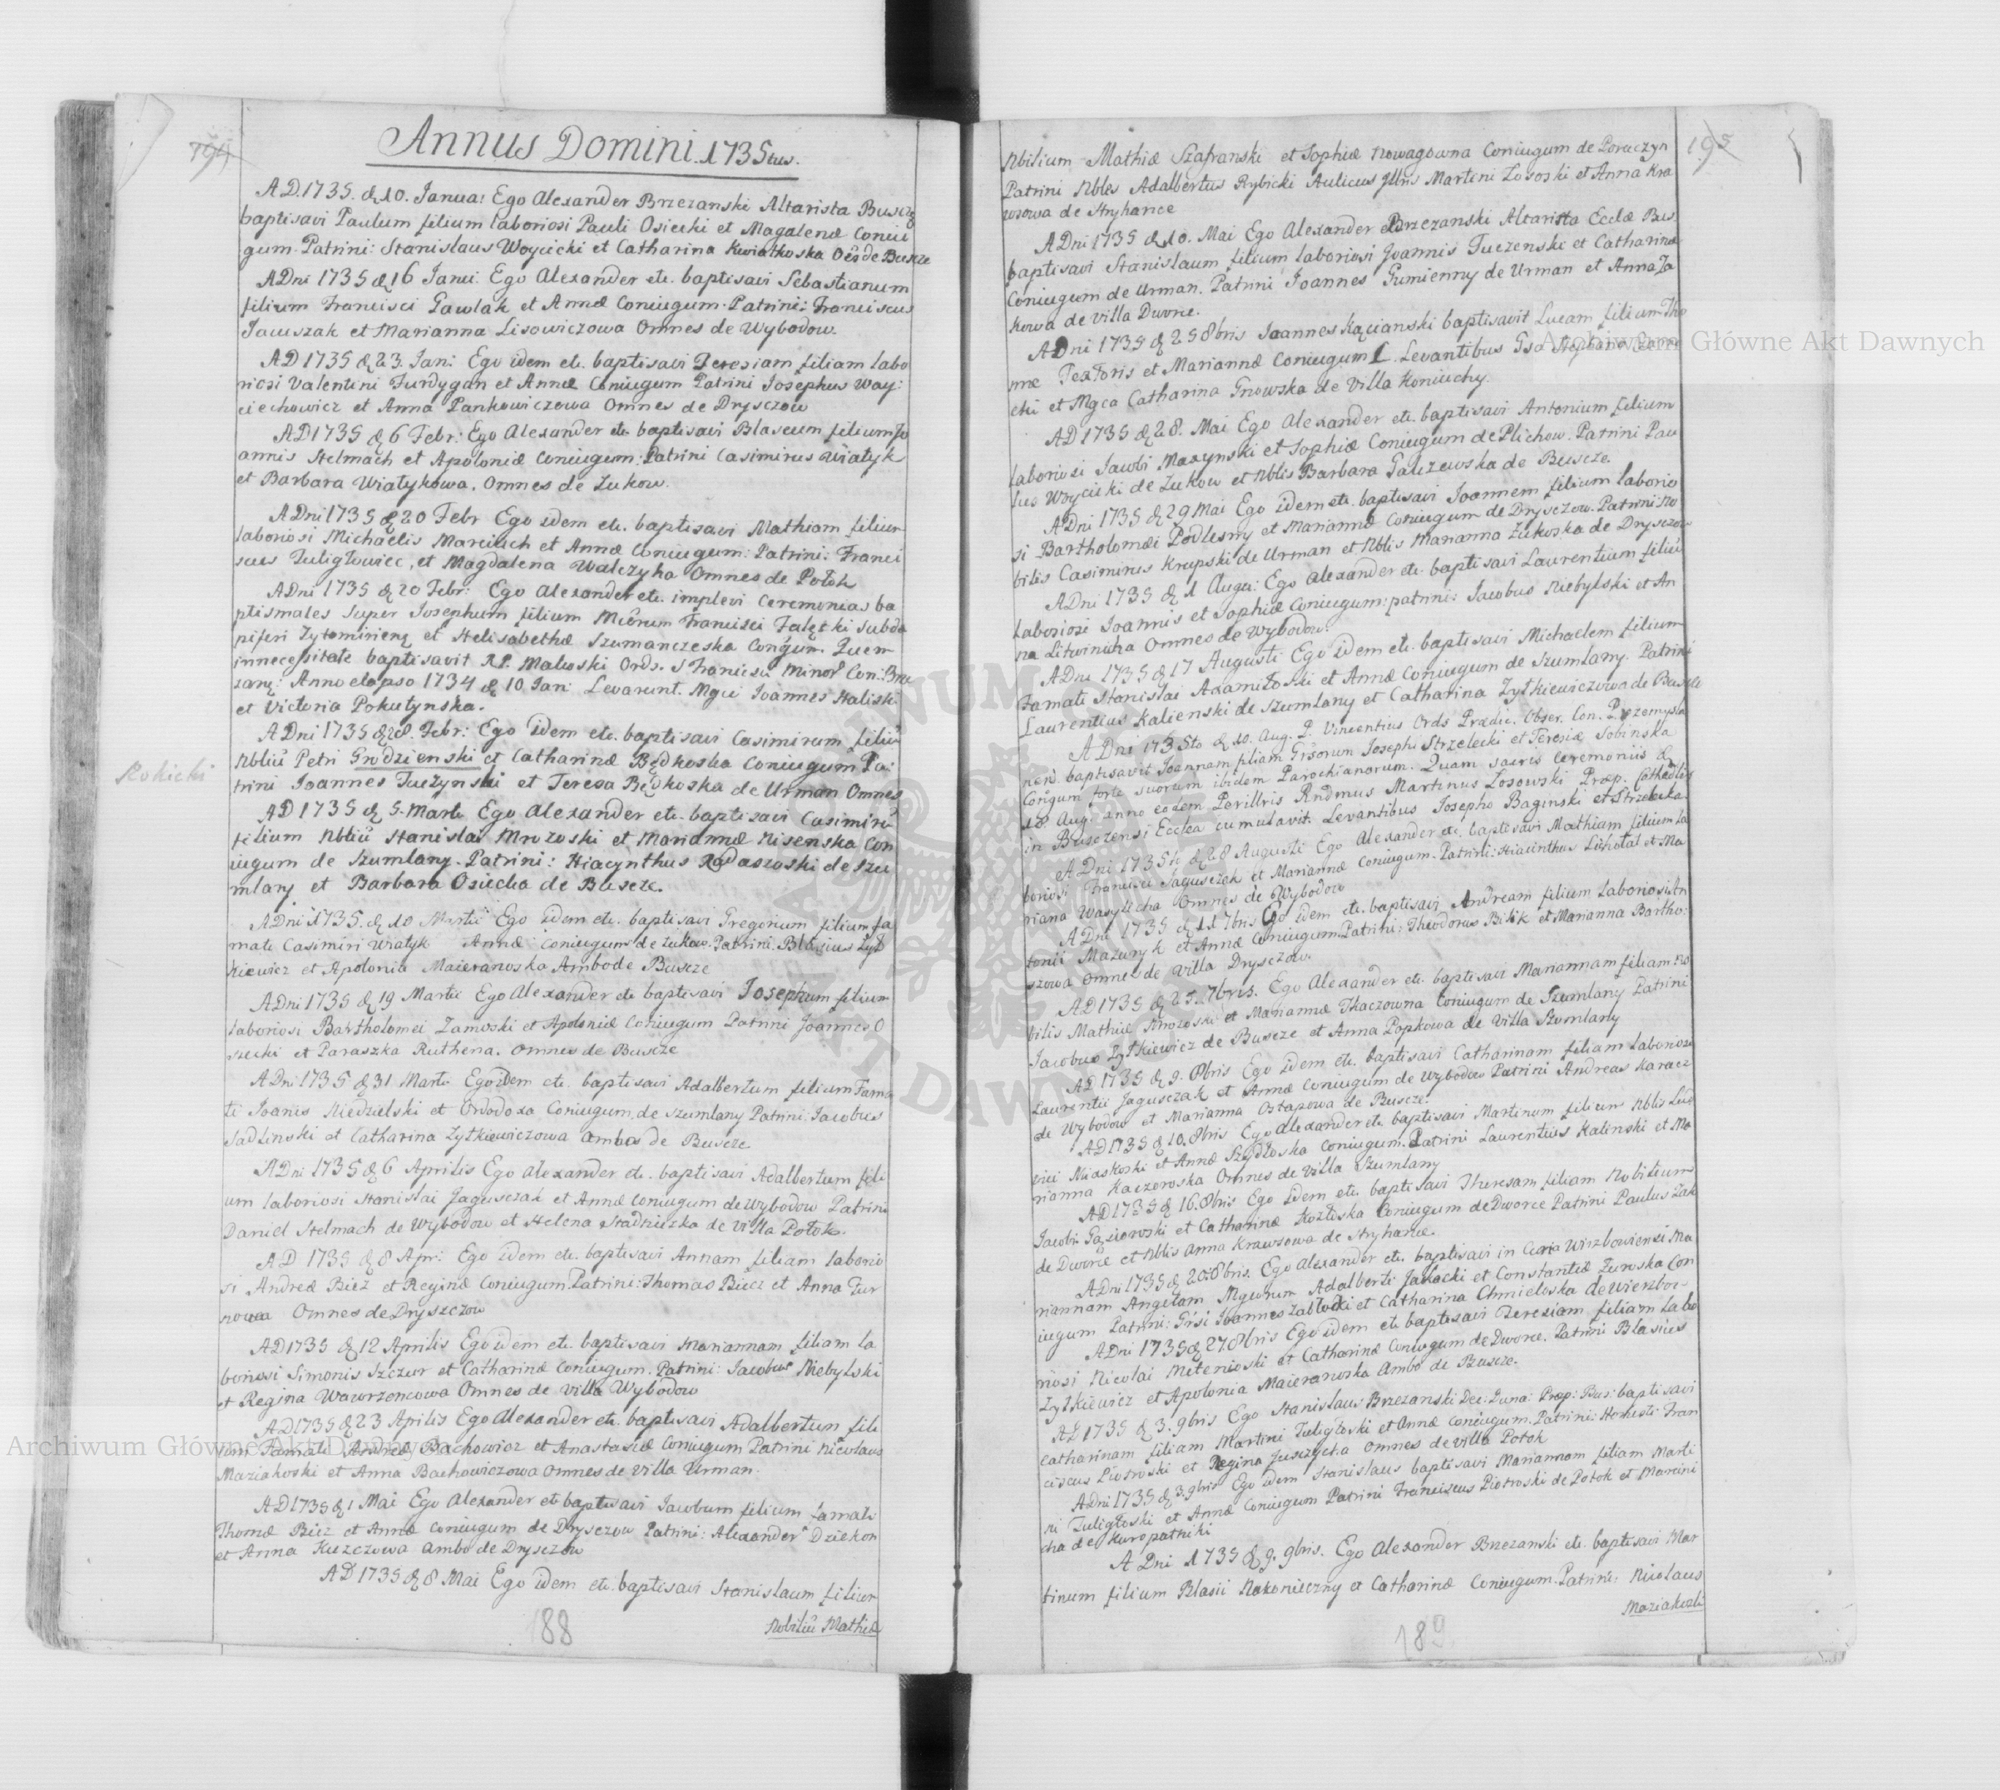 194
Annus Domini 1735tus.
AD.1735. d 10. Janua: Ego Alexander Brzezanski Altarista Buscz
baptisavi Paulum filium laboriosi Pauli Osiecki et Magdalenæ Coniu
gum. Patrini: Stanislaus Woycicki et Catharina Kwiatkoska Oēs de Buscze
ADni 1735 d 16 Janu: Ego Alexander etc. baptisavi Sebastianum
filium Francisci Gawlak et Annæ Coniugum. Patrini: Franciscus
Januszak et Marianna Lisowiczowa Omnes de Wybodow.
AD 1735 d 23. Jan: Ego idem etc. baptisavi Teresiam filiam labo
riosi Valentini Furdygan et Annæ Coniugum Patrini Josephus Woy:
ciechowicz et Anna Pankowiczowa Omnes de Dryszczow
AD 1735 d 6 Febr: Ego Alexander etc baptisavi Blaseum filium Jo
annis Stelmach et Apoloniæ Coniugum: Patrini Casimirus Wiatyk
et Barbara Wiatykowa. Omnes de Zukow.
ADni 1735 d 20 Febr Ego idem etc. baptisavi Mathiam filium
laboriosi Michaelis Marciuch et Annæ Coniugum: Patrini: Franci
scus Tuligłowiec, et Magdalena Walczyha Omnes de Połok
ADni 1735 d 20 Febr: Ego Alexander etc. implevi Ceremonias ba
ptismales super Josephum filium Mcorum Francisci Falęcki Subda
piferi Zytomiriens et Helisabethæ Szumanczeska Coniugum. Quem
in necessitate baptisavit R.P. Maleoski Ords. S Francisci Minor Con: Brze
zanz: Anno elapso 1734 d 10 Jan: Levarunt. Mgci Joannes Haliski
et Victoria Pokutynska.
ADni 1735 d 28. Febr: Ego idem etc. baptisavi Casimirum filiū
Nbliū Petri Grodzienski et Catharinæ Będkoska Coniugum Pa:
Rokicki
trini Joannes Tuczynski et Teresa Będkoska de Urman Omnes
AD 1735 d 5. Martii Ego Alexander etc. baptisavi Casimirū
filium Nbliū Stanislai Mrozoski et Mariannæ Nisenska Con
iugum de Szumlany. Patrini: Hiacynthus Radaszoski de Szu
mlany et Barbara Osiecka de Buscze.
ADni 1735. d 10 Martii Ego idem etc. baptisavi Gregorium filium fa
mati Casimiri Wiatyk Annæ Coniugum de Zukow. Patrini. Blasius Zyt
kiewicz et Apolonia Maieranoska Ambo de Buscze
ADni 1735 d 19 Martii Ego Alexander etc baptisavi Josephum filium
laboriosi Bartholomei Zamoski et Apoloniæ Coniugum Patrini Joannes O
siecki et Paraszka Ruthena. Omnes de Buscze
ADni 1735 d 31 Martii Ego idem etc. baptisavi Adalbertum filium Fama
ti Joanis Niedzielski et Ododoxa Coniugum de Szumlany Patrini: Jacobus
Sadlinski et Catharina Zytkiewiczowa ambo de Buscze
ADni 1735 d 6 Aprilis Ego Alexander etc. baptisavi Adalbertum fili
um laboriosi Stanislai Jagusczak et Annæ Coniugum de Wybodow Patrini
Daniel Stelmach de Wybodow et Helena Stadnicka de villa Połok.
AD 1735 d 8 Apr: Ego idem etc. baptisavi Annam filiam laborio
si Andreæ Biez et Reginæ Coniugum. Patrini: Thomas Biez et Anna Tur
nowa Omnes de Dryszczow
AD 1735 d 12 Aprilis Ego idem etc. baptisavi Mariannam filiam la
boriosi Simonis Szczur et Catharinæ Coniugum. Patrini: Jacobus Niebylski
et Regina Wawrzencowa Omnes de villa Wybodow
AD 1735 d 23 Aprilis Ego Alexander etc. baptisavi Adalbertum fili
um Famati Andreæ Bachowicz et Anastasiæ Coniugum Patrini Nicolaus
Maziakoski et Anna Bachowiczowa Omnes de villa Urman.
AD 1735 d 1 Mai Ego Alexander etc baptisavi Jacobum filium famati
Thomæ Biez et Annæ Coniugum de Dryszow Patrini: Alexander Dziekon
et Anna Kuzczowa ambo de Dryszczow
AD 1735 d 8 Mai Ego idem etc. baptisavi Stanislaum filium
Nobiliū Mathiæ
188
195
Nbilium Mathiæ Szafranski et Sophiæ Nowagowna Coniugum de Poruczyn
Patrini Nbles Adalbertus Rybicki Aulicus Illris Martini Zososki et Anna Kra
wzowa de Stryhance
ADni 1735 d 10. Mai Ego Alexander Brzezanski Altarista Eccłæ Bus
baptisavi Stanislaum filium laboriosi Joannis Tuczenski et Catharinæ
Coniugum de Urman. Patrini Joannes Gumienny de Urman et Anna Ja
kowa de villa Dworce.
ADni 1735 d 25 8bris Joannes Kącianski baptisavit Lucam filium Tho
mæ Textoris et Mariannæ Coniugum L. Levantibus Gso Stephano
cki et Mgca Catharina Gnowska de Villa Koniuchy.
AD 1735 d 28. Mai Ego Alexander etc. baptisavi Antonium filium
laboriosi Jacobi Mazynski et Sophiæ Coniugum de Plichow. Patrini Pau
lus Woycicki de Zukow et Nblis Barbara Galczewska de Buscze.
ADni 1735 d 29 Mai Ego idem etc. baptisavi Joannem filium laborio
si Bartholomæi Podlesny et Mariannæ Coniugum de Dryszow. Patrini: No
bilis Casimirus Krupski de Urman et Nblis Marianna Zukoska de Dryszczow
ADni 1735 d 1 Augu: Ego Alexander etc. baptisavi Laurentium filiū
laboriosi Joannis et Sophiæ Coniugum: patrini: Jacobus Niebylski et An
na Litwinicha Omnes de Wybodow.
ADni 1735 d 17 Augusti Ego idem etc. baptisavi Michaelem filium
Famati Stanislai Adamiłoski et Annæ Coniugum de Szumlany. Patrini
Laurentius Kalienski de Szumlany et Catharina Zytkiewiczowa de Buscze
ADni 1735to d 10. Aug. P. Vincentius Ords Prædic. Obser. Con. Przemysla
nen baptisavit Joannam filiam Grsorum Josephi Strzelecki et Teresiæ Sobinska
Coniugum forte suorum ibidem Parochianorum. Quam sacris ceremoniis d
18 Aug. anno eodem Perillris Rndmus Martinus Zosowski Præp.
in Busczensi Ecclea cumulavit. Levantibus Josepho Baginski et Strzelecka
ADni 1735ti d 28 Augusti Ego Alexander etc. baptisavi Mathiam filium la
boriosi Francisci Jagusczak et Mariannæ Coniugum. Patrini: Hiacinthus Lishotal et Ma
rianna Wasylicha Omnes de Wybodow
ADni 1735 d 11 7bris Ego idem etc. baptisavi Andream filium laboriosi An
tonii Mazuryk et Annæ Coniugum. Patrini: Theodorus Bilik et Marianna Bartho:
szowa Omnes de Villa Dryszow.
AD 1735 d 25. 7bris. Ego Alexander etc. baptisavi Mariannam filiam No
bilis Mathiæ Mrozoski et Mariannæ Tkaczowna Coniugum de Szumlany Patrini
Jacobus Zytkiewicz de Buscze et Anna Popkowa de villa Szumlany
AD 1735 d 9. 8bris Ego idem etc. baptisavi Catharinam filiam laboriosi
Laurentii Jagusczak et Annæ Coniugum de Wybodow Patrini Andreas Karacz
de Wybodow et Marianna Ostapowa de Buscze.
AD 1735 d 10. 8bris Ego Alexander etc baptisavi Martinum filium Nblis Lud
vici Niaskoski et Annæ Szydłoska Coniugum. Patrini Laurentius Kalinski et Ma
rianna Kaczoroska Omnes de villa Szumlany
AD 1735 d 16. 8bris Ego idem etc. baptisavi Theresam filiam Nobilium
Jacobi Gąsiorowski et Catharinæ Kozłoska Coniugum de Dworce Patrini Paulus Zak
de Dworce et Nblis Anna Krawzowa de Stryhance.
ADni 1735 d 20. 8bris. Ego Alexander etc. baptisavi in Curia Wirzbowiensi Ma
riannam Angelam Mgcorum Adalberti Jałacki et Constantiæ Zuroska Con
iugum Patrini: Grsi Joannes Zabłocki et Catharina Chmieloska de Wierzbow
ADni 1735 d 27. 8bris Ego idem etc baptisavi Teresiam filiam labo
riosi Nicolai Metenioski et Catharinæ Coniugum de Dworce. Patrini Blasius
Zytkiewicz et Apolonia Maieranoska Ambo de Buscze.
AD 1735 d 3. 9bris Ego Stanislaus Brzezanski Dec: Duna: Præp: Bus: baptisavi
Catharinam filiam Martini Tuligłoski et Annæ Coniugum. Patrini: Honesti Fran
ciscus Piotroski et Regina Juszczycha Omnes de villa Potok
ADni 1735 d 3. 9bris Ego idem Stanislaus baptisavi Mariannam filiam Marti
ni Tuligłoski et Annæ Coniugum Patrini Franciscus Piotroski de Potok et Marcini
cha de Kuropatniki
A Dni 1735 d 9. 9bris. Ego Alexander Brzezanski etc. baptisavi Mar
tinum filium Blasii Nakonieczny et Catharinæ Coniugum. Patrini: Nicolaus
Maziakoski
189
Archiwum Główne Akt Dawnych
Archiwum Główne Akt Dawnych